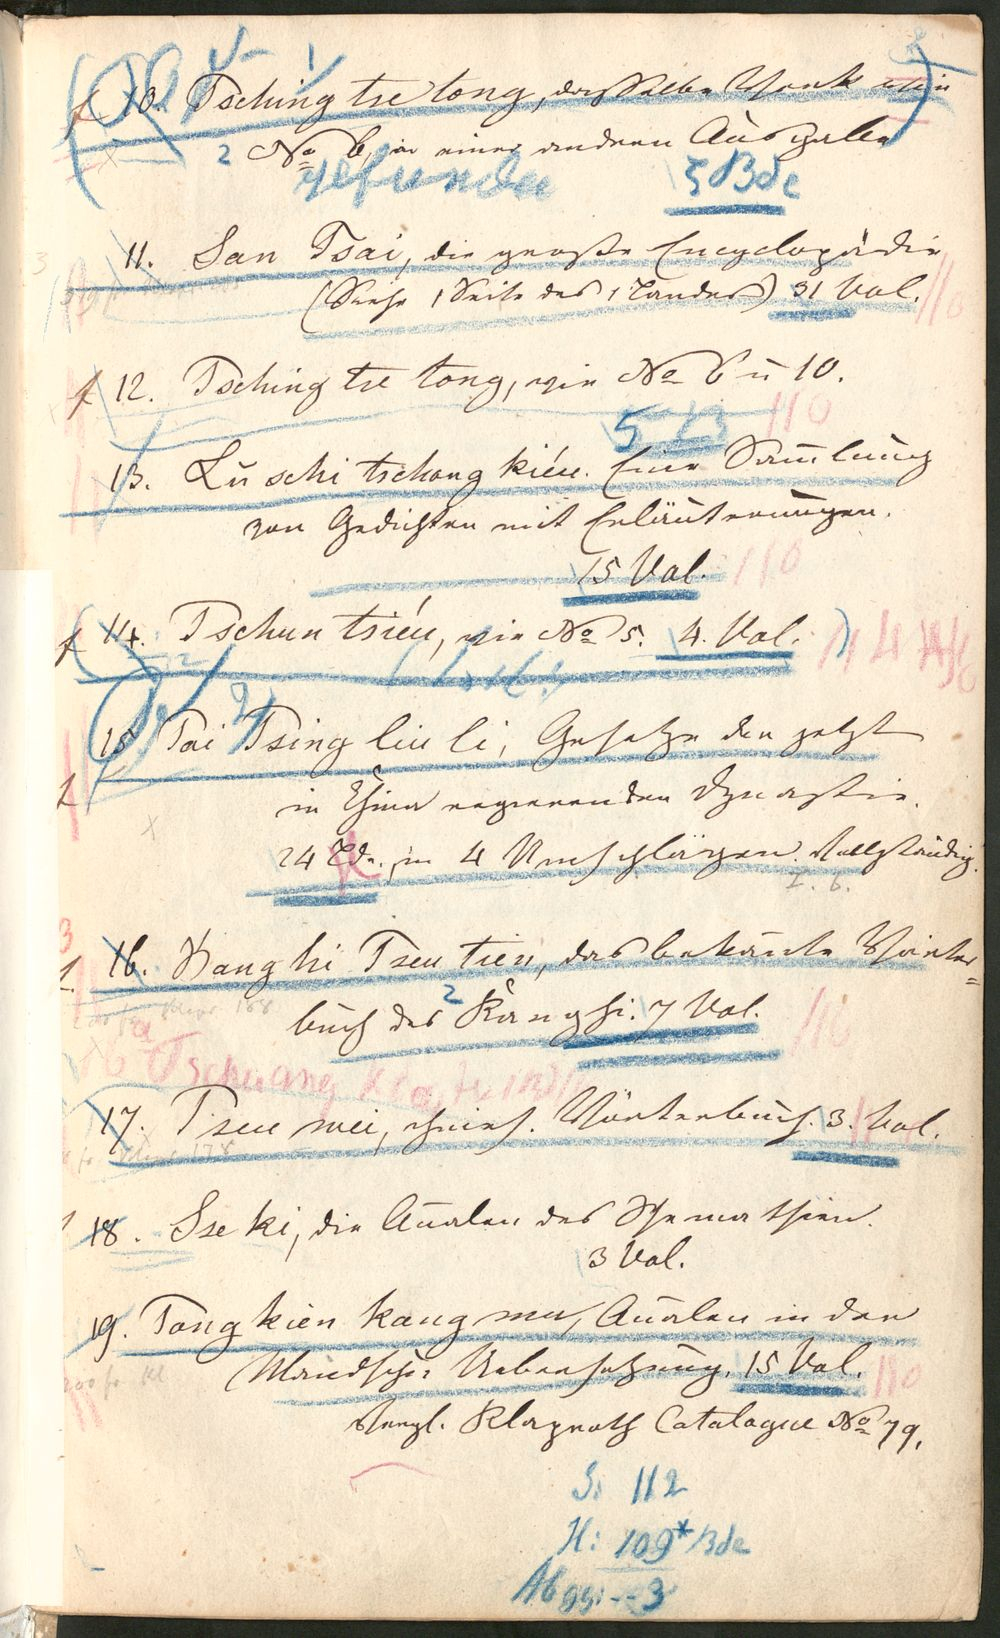 10. Tsching tse tong, dasselbe Werk wie
2 No 6, in einer andren Ausgabe
gefunden 5 Bde
11. San Tsai, die große Encyclopädie
(Siehe 1 Seite des 1 Bandes) 31 Vol.
12. Tsching tse tong, wie No 6 u 10.
13. Lu schi tschang kién. Eine Sammlung
von Gedichten mit Erläuterungen.
15 Vol.
14. Tschun tsiéu, wie No 5. 4. Vol.
15 Tai Tsing liu li, Gesetze der jetzt
in China regierenden Dynastie.
24 Bde. in 4 Umschlägen. Vollständig.
16. Kang hi Tseu tien, das bekannte Wörter=
buch des Kanghi. 7 Vol.
2
Tschuang
17. Tseu wei, chines. Wörterbuch. 3. Vol.
18. Sse ki, die Annalen des Sse ma thsien.
3 Vol.
19. Tong kien kang mu, Annalen in der
Mandschu Uebersetzung. 15 Vol.
Vergl. Klaproth Catalogue No 79.
S: 112
H: 109* Bde
Abgg: -- 3